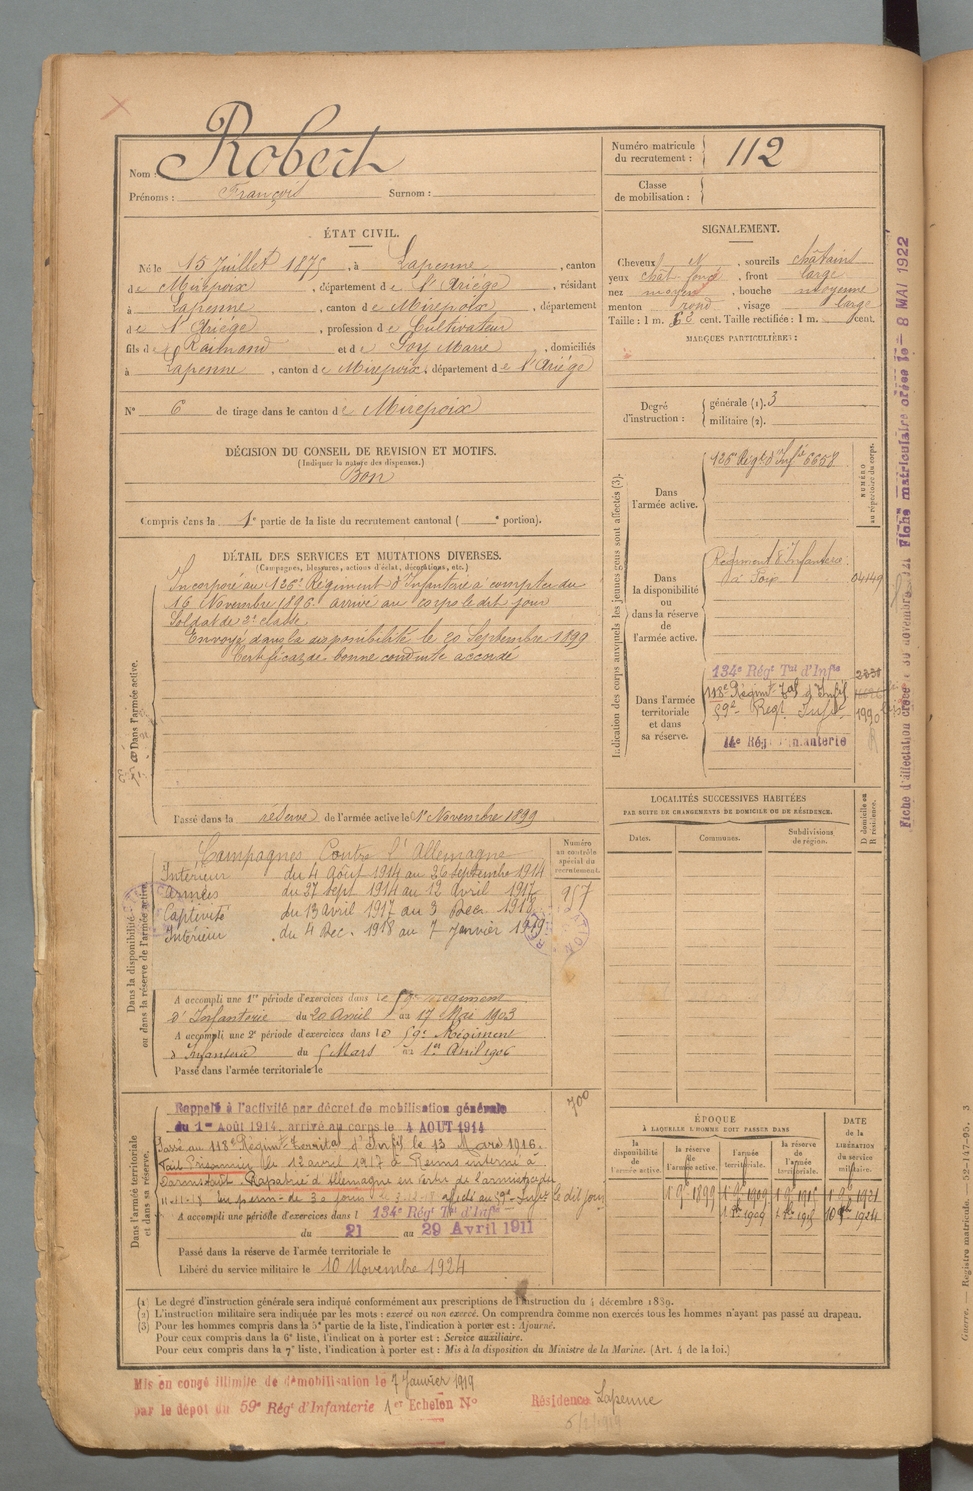 Robert
Nom :
Prénoms : François Surnom :
Numéro matricule
du recrutement : 112
Classe
de mobilisation :
ÉTAT CIVIL.
Né le 15 Juillet 1875, à Lapenne, canton
de Mirepoix, département de l'Ariége, résidant
à Lapenne, canton de Mirepoix, département
de l'Ariége, profession de Cultivateur
fils de Raimond et de Soy Marie, domiciliés
à Lapenne, canton de Mirepoix, département de l'Ariége
N° 6 de tirage dans le canton de Mirepoix
SIGNALEMENT.
Cheveux N, sourcils châtains
yeux chât foncé, front large
nez moyen, bouche moyenne
menton rond, visage large
Taille : 1 m. 63 cent. Taille rectifiée : 1 m. cent.
MARQUES PARTICULIÈRES :
Degré
d'instruction : générale (1). 3
militaire (2).
DÉCISION DU CONSEIL DE REVISION ET MOTIFS.
(Indiquer la nature des dispenses.)
Bon
Compris dans la 1e partie de la liste du recrutement cantonal ( e portion).
DÉTAIL DES SERVICES ET MUTATIONS DIVERSES.
(Campagnes, blessures, actions d'éclat, décorations, etc.)
Dans l'armée active.
Incorporé au 126e Régiment d'Infanterie à compter du
16 Novembre 1896. arrivé au corps le dit jour
Soldat de 2e classe
Envoyé dans la disponibilité le 20 Septembre 1899
Certificat de bonne conduite accordé
Passé dans la réserve de l'armée active le 1er Novembre 1899
Indication des corps auxquels les jeunes gens sont affectés (3).
Dans
l'armée active.
126e Régt d'Infie 6658
NUMÉRO
au répertoire du corps.
Dans
la disponibilité
ou
dans la réserve
de
l'armée active.
Régiment d'Infanterie
à Foix 04149
Dans l'armée
territoriale
et dans
sa réserve.
134e Régt Tal d'Infie
118e Régimt Tal d'Infie
59e Régt Infie 1990
14e Rég Infanterie
Fiche matriculaire créée le 8 MAI 1922
LOCALITÉS SUCCESSIVES HABITÉES
PAR SUITE DE CHANGEMENTS DE DOMICILE OU DE RÉSIDENCE.
Dates. Communes. Subdivisions
de région.
D domicile ou
R résidence.
Dans la disponibilité
ou dans la réserve de l'armée active.
Numéro
au contrôle
spécial du
recrutement.
957
Campagnes Contre l'Allemagne
Intérieur du 4 Août 1914 au 26 septembre 1914
Armées du 27 sept 1914 au 12 avril 1917
Captivité du 13 avril 1917 au 3 Déc. 1918
Intérieur du 4 Déc. 1918 au 7 janvier 1919
A accompli une 1re période d'exercices dans le 59e régiment
d'Infanterie du 20 Avril au 17 Mai 1903
A accompli une 2e période d'exercices dans le 59e Régiment
d'Infanterie du 5 Mars au 1er Avril 1906
Passé dans l'armée territoriale le
Dans l'armée territoriale
et dans sa réserve.
700
Rappelé à l'activité par décret de mobilisation générale
du 1er Août 1914, arrivé au corps le 4 AOUT 1914
Passé au 118e Régimt Territal d'Infie le 13 Mars 1916.
Fait Prisonnier le 12 avril 1917 à Reims interné à
Darmstadt. Rapatrié d'Allemagne en vertu de l'armistice du
11-11-18 en perm- de 30 jours affecté au 59e Infie le dit jour
A accompli une période d'exercices dans l 134e Régt Tal d'Infie
du 21 au 29 Avril 1911
Passé dans la réserve de l'armée territoriale le
Libéré du service militaire le 10 Novembre 1924
ÉPOQUE
À LAQUELLE L'HOMME DOIT PASSER DANS
la
disponibilité
de
l'armée active.
la réserve
de
l'armée active.
l'armée
territoriale.
la réserve
de
l'armée
territoriale.
DATE
de la
LIBÉRATION
du service
militaire.
(1) Le degré d'instruction générale sera indiqué conformément aux prescriptions de l'instruction du 4 décembre 1889.
(2) L'instruction militaire sera indiquée par les mots : exercé ou non exercé. On comprendra comme non exercés tous les hommes n'ayant pas passé au drapeau.
(3) Pour les hommes compris dans la 5e partie de la liste, l'indication à porter est : Ajourné.
Pour ceux compris dans la 6e liste, l'indication à porter est : Service auxiliaire.
Pour ceux compris dans la 7e liste, l'indication à porter est : Mis à la disposition du Ministre de la Marine. (Art. 4 de la loi.)
Mis en congé illimité de démobilisation le 7 Janvier 1919
par le dépôt du 59e Régt d'Infanterie 1er Echelon N°
Résidence Lapenne